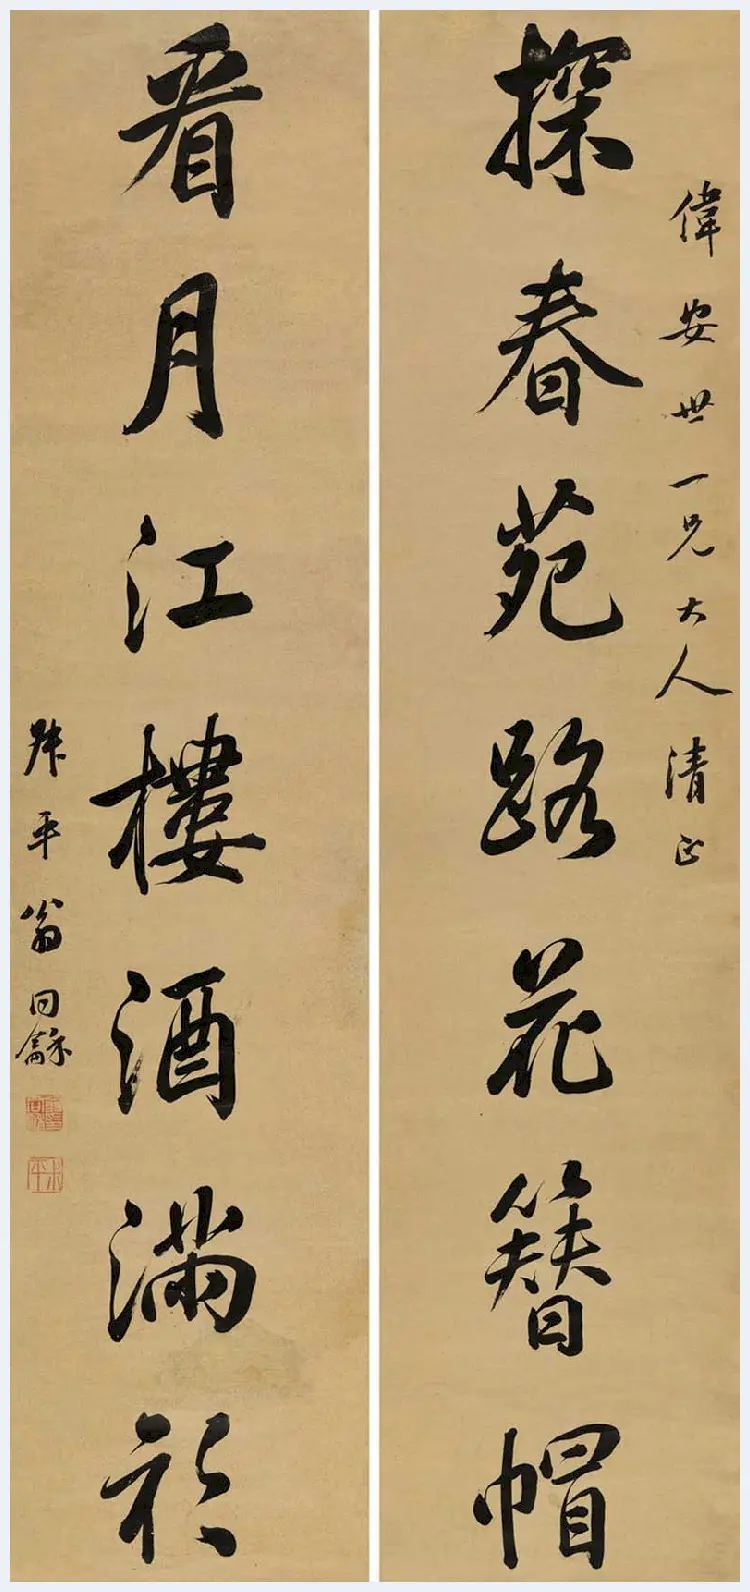 偉安世一兄大人清正
探春苑路花簪帽
看月江樓酒滿衫
叔平翁同龢